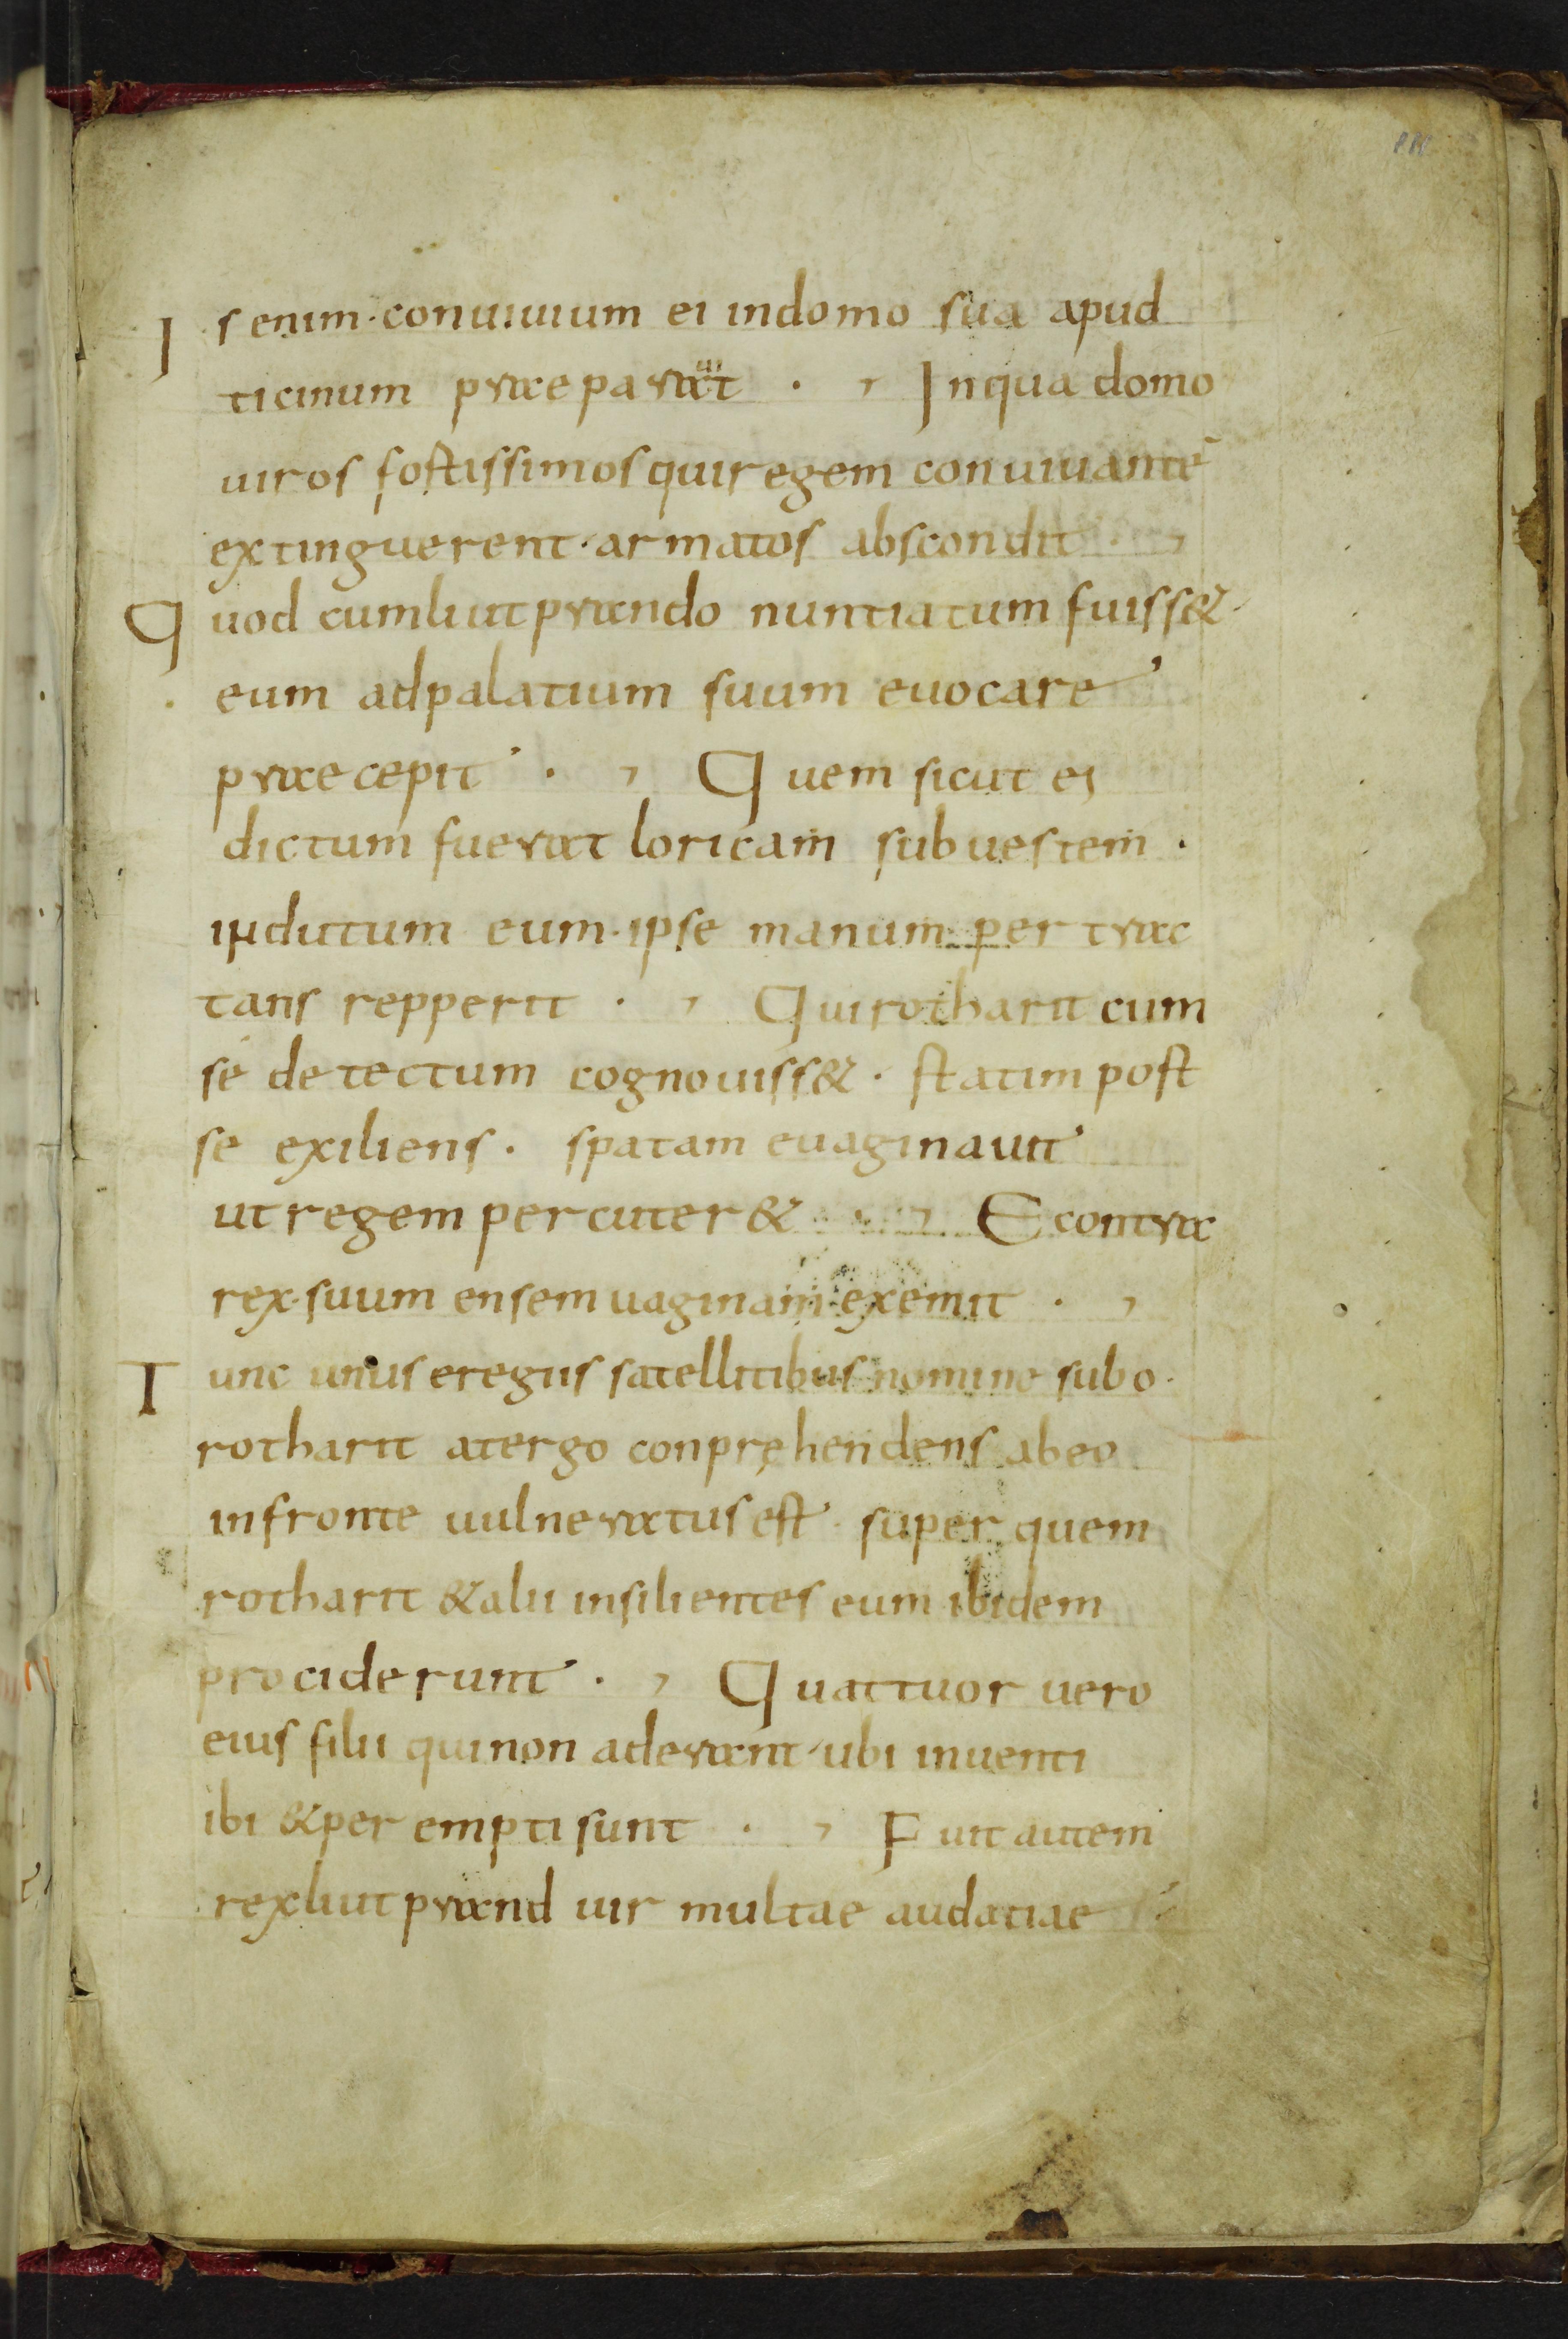 Is enim · conuiuium ei indomo sua apud
ticinum praeparauit · , Inqua domo
uiros fortissimos qui regem conuiuantē
extinguerent · armatos abscondit · ,
Quod cumliutprando nuntiatum fuiss& ·
eum adpalatium suum euocare
praecepit · , Quem sicut ei
dictum fuerat loricam sub uestem ·
indutum eum · ipse manum pertrac
tans repperit · , Qui rotharit cum
se detectum cognouiss& · statim post
se exiliens · spatam euaginauit
ut regem percuter& · , E contra
rex · suum ensem uaginam exemit · ,
Tunc unus eregiis satellitibus nomine subo ·
rotharit atergo conpręhendens abeo
infronte uulneratus est · super quem
rotharit &alii insilientes eum ibidem
prociderunt · , Quattuor uero
eius filii quinon aderant · ubi inuenti
ibi &perempti sunt · , Fuit autem
rexliutprand uir multae audatiae